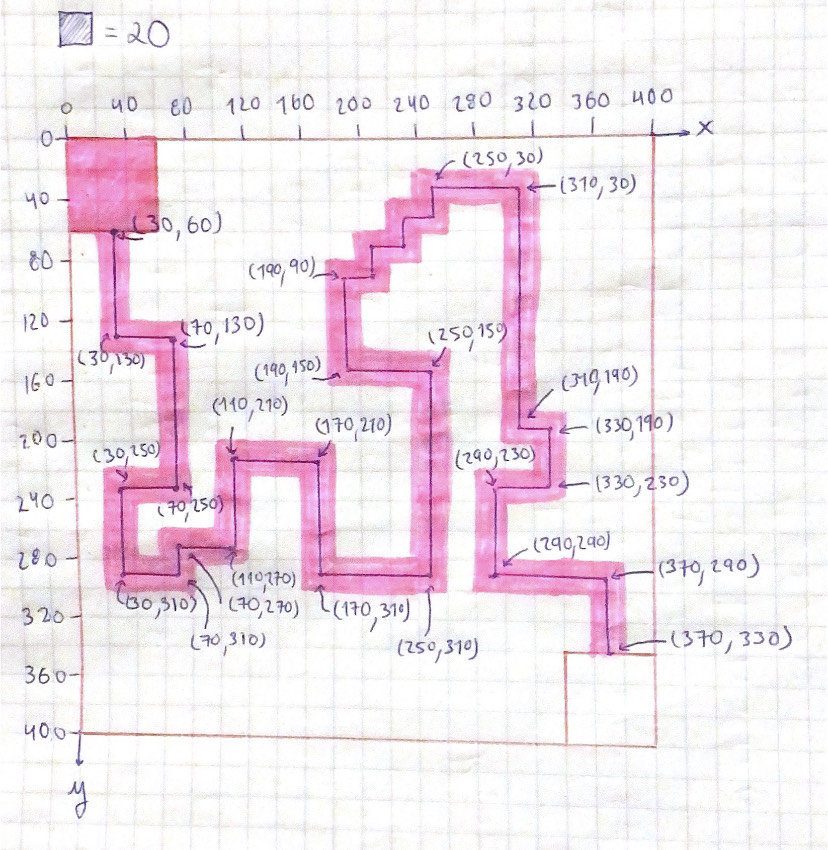 = 20
0 40 80 120 160 200 240 280 320 360 400
x
0
40
80
120
160
200
240
280
320
360
400
y
(250,30)
(310,30)
(30,60)
(190,90)
(70,130)
(30,130)
(250,150)
(190,150)
(310,190)
(110,210)
(170,210)
(330,190)
(30,250)
(290,230)
(330,230)
(70,250)
(290,290)
(370,290)
(110,270)
(30,310)
(70,270)
(170,310)
(70,310)
(250,310)
(370,330)